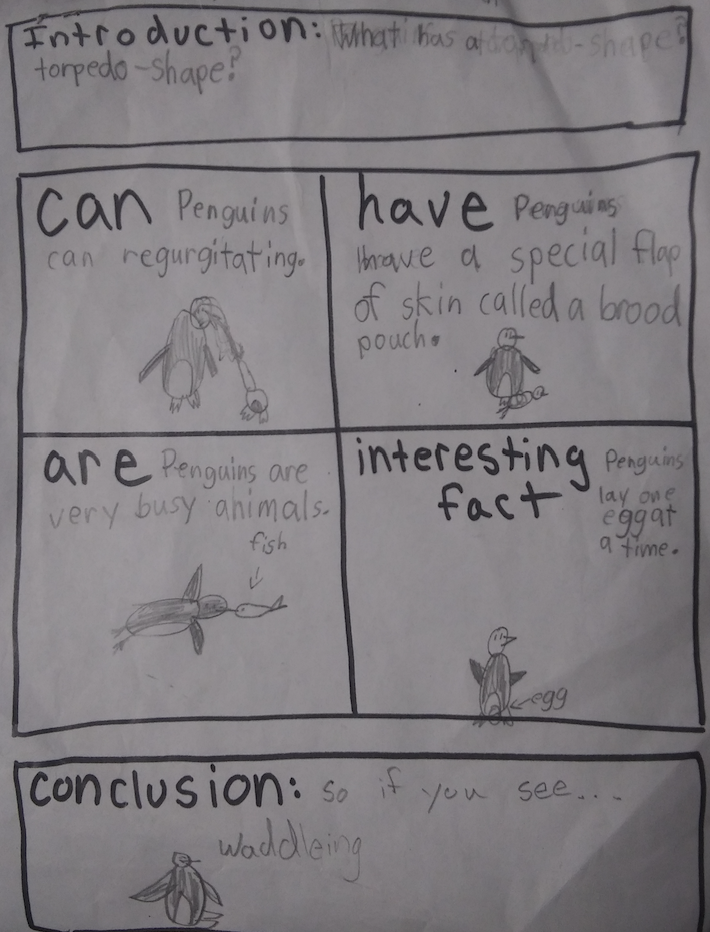 Introduction: What has a torpedo-shape?
torpedo-shape?
can Penguins
can regurgitating.
have Penguins
have a special flap
of skin called a brood
pouch.
are Penguins are
very busy animals.
fish
interesting Penguins
fact lay one
egg at
a time.
egg
conclusion: so if you see...
waddleing